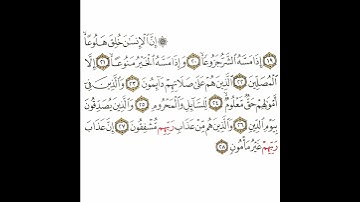 ۞ إِنَّ ٱلْإِنسَٰنَ خُلِقَ هَلُوعًا
١٩ إِذَا مَسَّهُ ٱلشَّرُّ جَزُوعًا ٢٠ وَإِذَا مَسَّهُ ٱلْخَيْرُ مَنُوعًا ٢١ إِلَّا
ٱلْمُصَلِّينَ ٢٢ ٱلَّذِينَ هُمْ عَلَىٰ صَلَاتِهِمْ دَآئِمُونَ ٢٣ وَٱلَّذِينَ فِىٓ
أَمْوَٰلِهِمْ حَقٌّ مَّعْلُومٌ ٢٤ لِّلسَّآئِلِ وَٱلْمَحْرُومِ ٢٥ وَٱلَّذِينَ يُصَدِّقُونَ
بِيَوْمِ ٱلدِّينِ ٢٦ وَٱلَّذِينَ هُم مِّنْ عَذَابِ رَبِّهِم مُّشْفِقُونَ ٢٧ إِنَّ عَذَابَ
رَبِّهِمْ غَيْرُ مَأْمُونٍ ٢٨